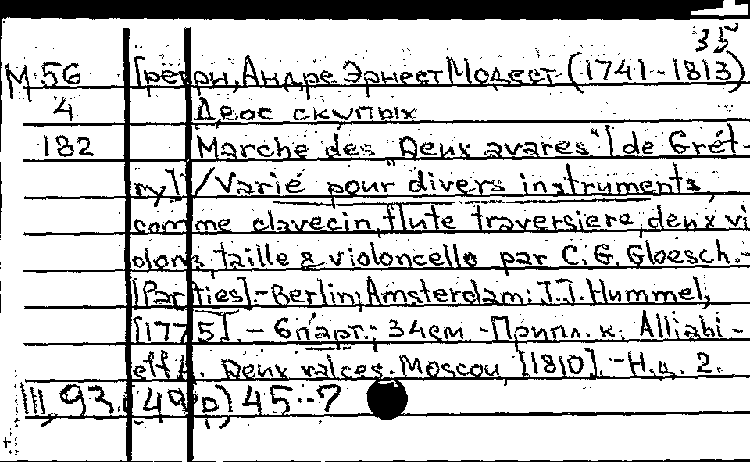 35
М 56 Гретри, Андре Эрнест Модест (1741-1813)
4 Двое скупых
182 Marche des "Deux avares" [de Grét-
ry] /Varié pour divers instruments,
comme clavecin, flute traversiere, deux vi
olons, taille & violoncello par C. G. Gloesch.-
[Parties].-Berlin; Amsterdam: J.J. Hummel,
[1775]. - 6 парт.; 34см. -Припл. к: Alliabi-
eff A. Deux valces. Moscou, [1810]. -Н.д. 2.
III, 93 (49 р) 45-7